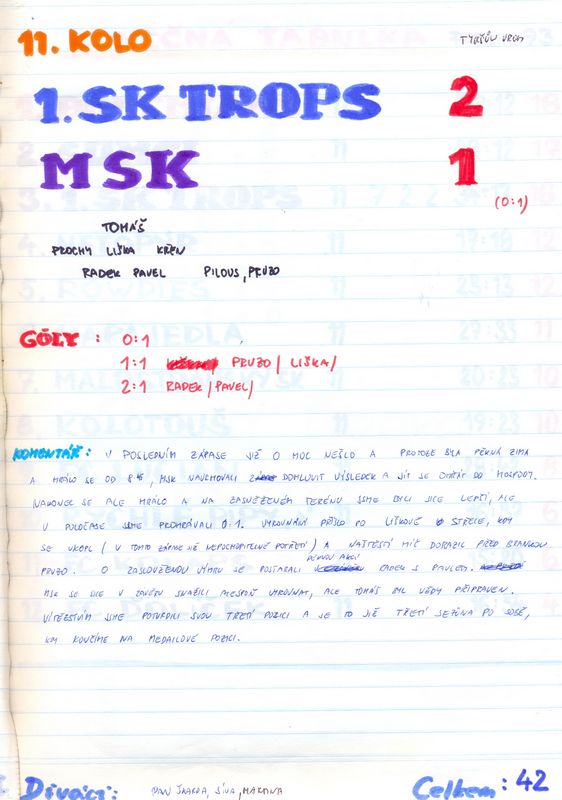 11. KOLO
TYRŠŮV VRCH
1. SK TROPS 2
MSK 1
(0:1)
TOMÁŠ
PROCHY LIŠKA KŘEN
RADEK PAVEL PILOUS, PRUZO
GÓLY : 0:1
1:1 PRUZO /LIŠKA/
2:1 RADEK /PAVEL/
KOMENTÁŘ: V POSLEDNÍM ZÁPASE JIŽ O MOC NEŠLO A PROTOŽE BYLA PĚKNÁ ZIMA
A HRÁLO SE OD 8, MSK NAVRHOVALI DOMLUVIT VÝSLEDEK A JÍT SE OHŘÁT DO HOSPODY.
NAKONEC SE ALE HRÁLO A NA ZASNĚŽENÉM TERÉNU JSME BYLI SICE LEPŠÍ, ALE
V POLOČASE JSME PROHRÁVALI 0:1. VYROVNÁNÍ PŘIŠLO PO LIŠKOVĚ STŘELE, KDY
SE UKOPL (V TOMTO ZÁPASE JIŽ NEPOCHOPITELNĚ POTŘETÍ) A NAŠTĚSTÍ MÍČ DORAZIL PŘED BRANKOU
PRUZO. O ZASLOUŽENOU VÝHRU SE POSTARALI PĚKNOU AKCÍ RADEK S PAVLEM.
MSK SE SICE V ZÁVĚRU SNAŽILI ALESPOŇ VYROVNAT, ALE TOMÁŠ BYL VŽDY PŘIPRAVEN.
VÍTĚZSTVÍM JSME POTVRDILI SVOU TŘETÍ POZICI A JE TO JIŽ TŘETÍ SEZÓNA PO SOBĚ,
KDY KONČÍME NA MEDAILOVÉ POZICI.
Diváci: PAN SÍVA, MARTINA
Celkem: 42